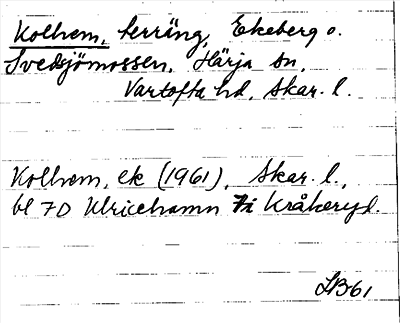 Kolhem, herräng, Ekeberg o.
Svedsjömossen, Härja sn,
Vartofta hd, Skar. l.
Kolhem, ek (1961), Skar. l.,
bl 7D Ulricehamn 7i Kråkeryd.
LB61